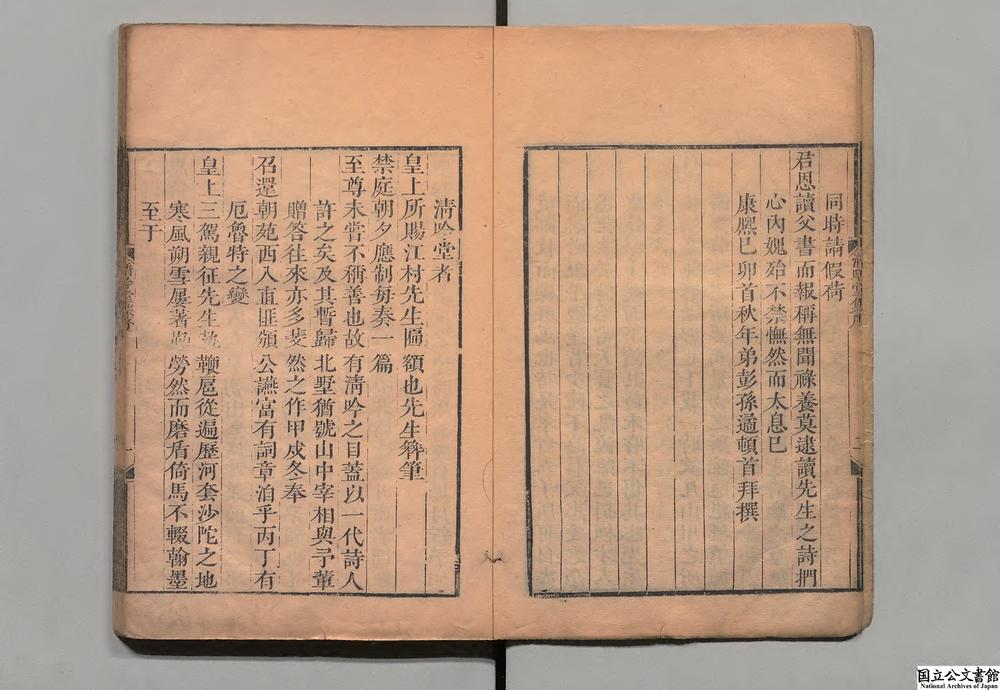 同時請假荷
君恩讀父書而報稱無聞祿養莫逮讀先生之詩捫
心內媿殆不禁憮然而太息已
康熈己卯首秋年弟彭孫遹頓首拜撰
清吟堂者
皇上所賜江村先生匾額也先生簪筆
禁庭朝夕應制每奏一篇
至尊未嘗不稱善也故有淸吟之目蓋以一代詩人
許之矣及其暫歸北墅猶號山中宰相與予輩
贈答往來亦多斐然之作甲戌冬奉
召還朝苑西入直匪頒公讌富有詞章洎乎丙丁有
厄魯特之變
皇上三駕親征先生執鞭扈從遍歷河套沙陀之地
寒風朔雪屢著勞然而磨盾倚馬不輟翰墨
至于
国立公文書館
National Archives of Japan